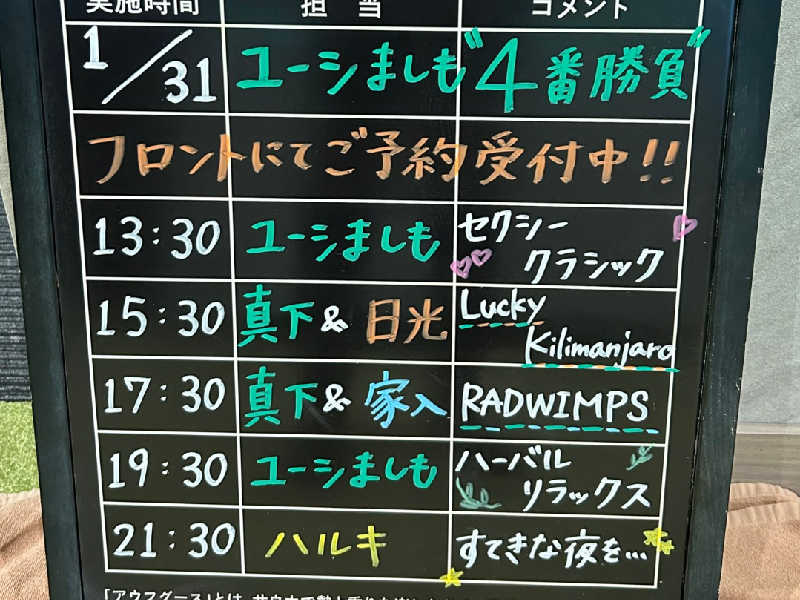 実施時間 担当 コメント
1/31 ユーシましも "4番勝負"
フロントにてご予約受付中!!
13:30 ユーシましも セクシー
クラシック
15:30 真下&日光 Lucky
Kilimanjaro
17:30 真下&家入 RADWIMPS
19:30 ユーシましも ハーバル
リラックス
21:30 ハルキ すてきな夜を…
「アウフグース」とは、サウナ